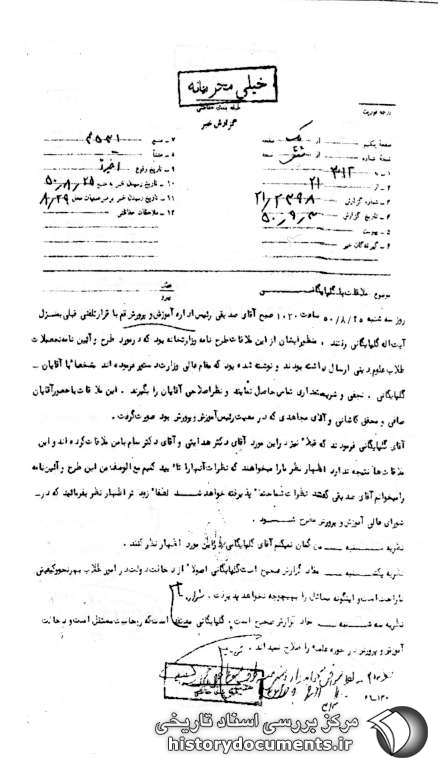 خیلی محرمانه
طبقه بندی حفاظتی
گزارش خبر
درجه فوریت
صفحه یکم از یک صفحه
نسخه شماره از نسخه
۱ - به ۳۱۲
۲ - از ۲۱
۳ - شماره گزارش ۲۱/۲۳۹۸
۴ - تاریخ گزارش ۵۰/۹/۳
۵ - پیوست
۶ - گیرندگان خبر
۷ - منبع
۸ - منشأ
۹ - تاریخ وقوع اخیراً
۱۰ - تاریخ رسیدن خبر به منبع ۵۰/۸/۲۵
۱۱ - تاریخ رسیدن خبر به رهبر عملیات محل ۸/۲۹
۱۲ - ملاحظات حفاظتی
موضوع ملاقات با گلپایگانی
روز سه شنبه ۵۰/۸/۲۵ ساعت ۱۰۲۰ صبح آقای صدیقی رئیس اداره آموزش و پرورش قم با قرار تلفنی قبلی بمنزل
آیت اله گلپایگانی رفتند منظور ایشان از این ملاقات طرح نامه وزارتخانه بود که در مورد طرح و آئین نامه تحصیلات
طلاب علوم دینی ارسال داشته بودند و نوشته شده بود که مقام عالی وزارت دستور فرموده اند شخصا با آقایان
گلپایگانی ، نجفی و شریعتمداری تماس حاصل نمایند و نظر اصلاحی آقایان را بگیرند . این ملاقات با حضور آقایان
صافی و محقق کاشانی و آقای مجاهدی که در معیت رئیس آموزش و پرورش بود صورت گرفت .
آقای گلپایگانی فرمودند که قبلا نیز در این مورد آقای دکتر هدایتی و آقای دکتر سام با من ملاقات کرده اند و این
ملاقات ها نتیجه ندارد اظهار نظر ما را میخواهند که نظرات آنها را تایید کنیم مع الوصف من این طرح و آئین نامه
را میخوانم آقای صدیقی گفتند نظرات شما حتما پذیرفته خواهد شد لطفا زودتر اظهار نظر بفرمائید که در
شورای عالی آموزش و پرورش مطرح شود .
نظریه شنبه من گمان نمیکنم آقای گلپایگانی در این مورد اظهار نظر کنند .
نظریه یکشنبه مفاد گزارش صحیح است گلپایگانی اصولا از دخالت دولت در امور طلاب بهر نحو و کیفیتی
ناراحت است و اینگونه مسائل را بهیچوجه نخواهد پذیرفت .
نظریه سه شنبه مفاد گزارش صحیح است . گلپایگانی معتقد است که روحانیت مستقل است و دخالت
آموزش و پرورش در حوزه علمیه را صلاح نمیداند .
مرکز بررسی اسناد تاریخی
historydocuments.ir